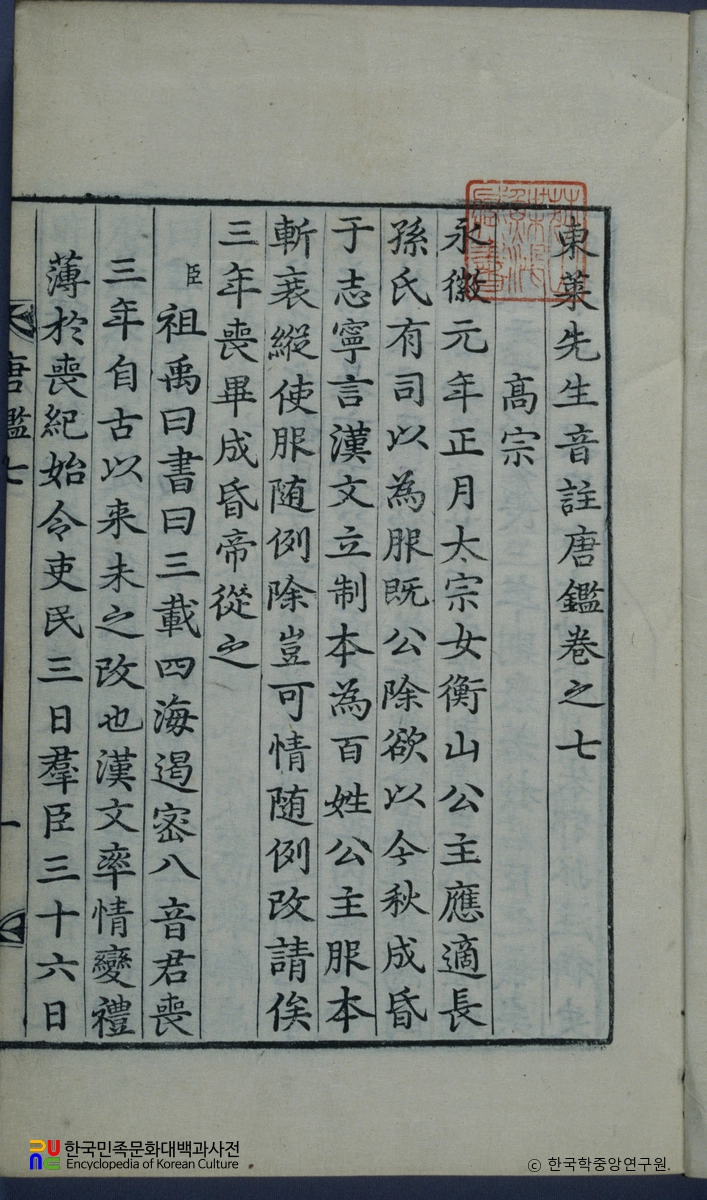 東萊先生音註唐鑑卷之七
高宗
永徽元年正月太宗女衡山公主應適長
孫氏有司以為服既公除欲以今秋成昏
于志寧言漢文立制本為百姓公主服本
斬衰縱使服随例除豈可情随例改請俟
三年喪畢成昏帝從之
臣祖禹曰書曰三載四海遏密八音君喪
三年自古以来未之改也漢文率情變禮
薄於喪紀始令吏民三日羣臣三十六日
唐鑑七
一
한국민족문화대백과사전
Encyclopedia of Korean Culture
ⓒ 한국학중앙연구원.